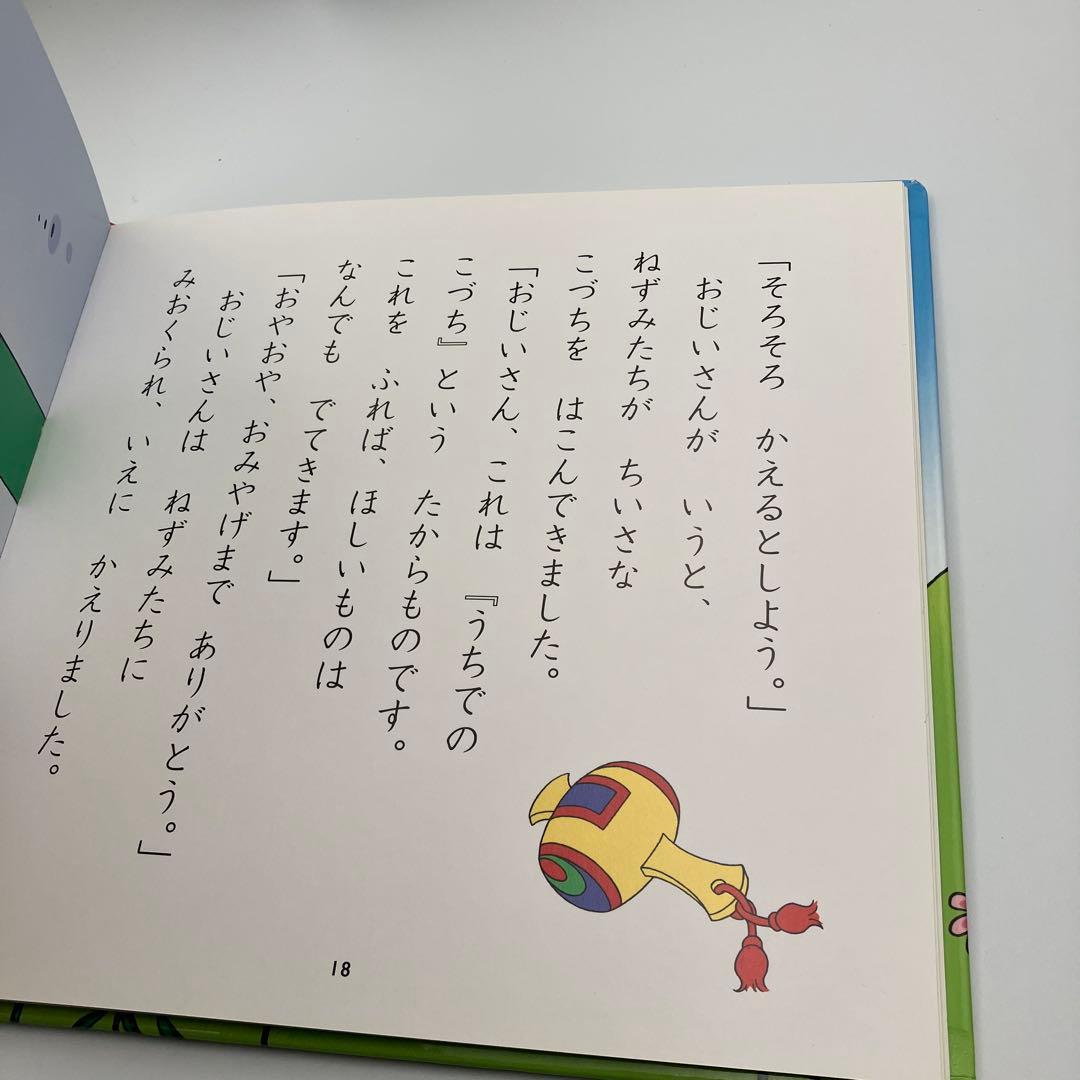 「そろそろ　かえるとしよう。」
おじいさんが　いうと、
ねずみたちが　ちいさな
こづちを　はこんできました。
「おじいさん、これは　『うちでの
こづち』という　たからものです。
これを　ふれば、ほしいものは
なんでも　でてきます。」
「おやおや、おみやげまで　ありがとう。」
おじいさんは　ねずみたちに
みおくられ、いえに　かえりました。
18